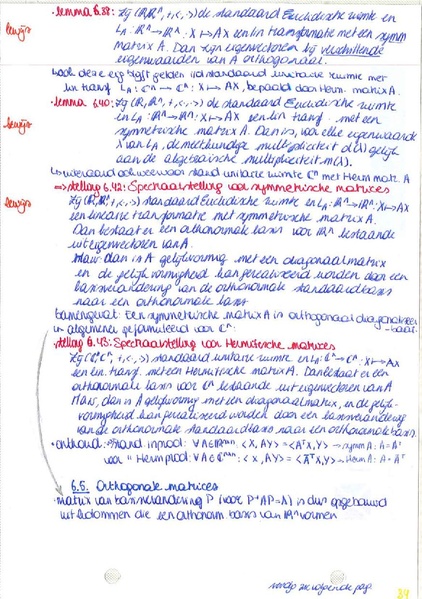 • lemma 6.38: Zij (ℝ,ℝⁿ,+,<,>) de standaard Euclidische ruimte en
L_A: ℝⁿ→ℝⁿ: X↦AX een lin transformatie met een symm
bewijs
matrix A. Dan zijn eigenvectoren bij verschillende
eigenwaarden van A orthogonaal.
↳ook deze eig blijft gelden i/d standaard unitaire ruimte met
lin transf. L_A: ℂⁿ→ℂⁿ: X↦AX, bepaald door Herm. matrix A.
• lemma 6.40: Zij (ℝ,ℝⁿ,+,<,>) de standaard Euclidische ruimte
bewijs
en L_A: ℝⁿ→ℝⁿ: X↦AX een lin transf. met een
symmetrische matrix A. Dan is, voor elke eigenwaarde
λ van L_A, de meetkundige multipliciteit d(λ) gelijk
aan de algebraïsche multipliciteit m(λ).
↳ uiteraard ook weer voor standaard unitaire ruimte ℂⁿ met Herm matr. A
⇒ stelling 6.42: Spectraalstelling voor symmetrische matrices
bewijs
Zij (ℝ,ℝⁿ,+,<,>) standaard Euclidische ruimte en L_A: ℝⁿ→ℝⁿ: X↦AX
een lineaire transformatie met symmetrische matrix A.
Dan bestaat er een orthonormale basis voor ℝⁿ bestaande
uit eigenvectoren van A.
Maw dan is A gelijkvormig met een diagonaalmatrix
en de gelijkvormigheid kan gerealiseerd worden door een
basisverandering van de orthonormale standaardbasis
naar een orthonormale basis
samengevat: Een symmetrische matrix A is orthogonaal diagonaliseer-
baar.
in algemener geformuleerd voor ℂⁿ:
stelling 6.43: Spectraalstelling voor Hermitische matrices
Zij (ℂ,ℂⁿ,+,<,>) standaard unitaire ruimte en L_A: ℂⁿ→ℂⁿ: X↦AX
een lin. transf. met een Hermitische matrix A. Dan bestaat er een
orthonormale basis voor ℂⁿ bestaande uit eigenvectoren van A
Maw, dan is A gelijkvormig met een diagonaalmatrix, en de gelijk-
vormigheid kan gerealiseerd worden door een basisverandering
van de orthonormale standaardbasis naar een orthonormale basis.
• onthoud: Stand inprod: ∀A∈ℝⁿˣⁿ: <X, AY> = <AᵀX,Y> → symm A: A=Aᵀ
voor " Herm prod: ∀A∈ℂⁿˣⁿ: <X, AY> = <ĀᵀX,Y> → Herm A: A=Āᵀ
6.5. Orthogonale matrices
• matrix van basisverandering P (voor P⁻¹AP=Δ) is dus opgebouwd
uit kolommen die een orthonorm basis van ℝⁿ vormen
vervolg zie volgende pag.
84